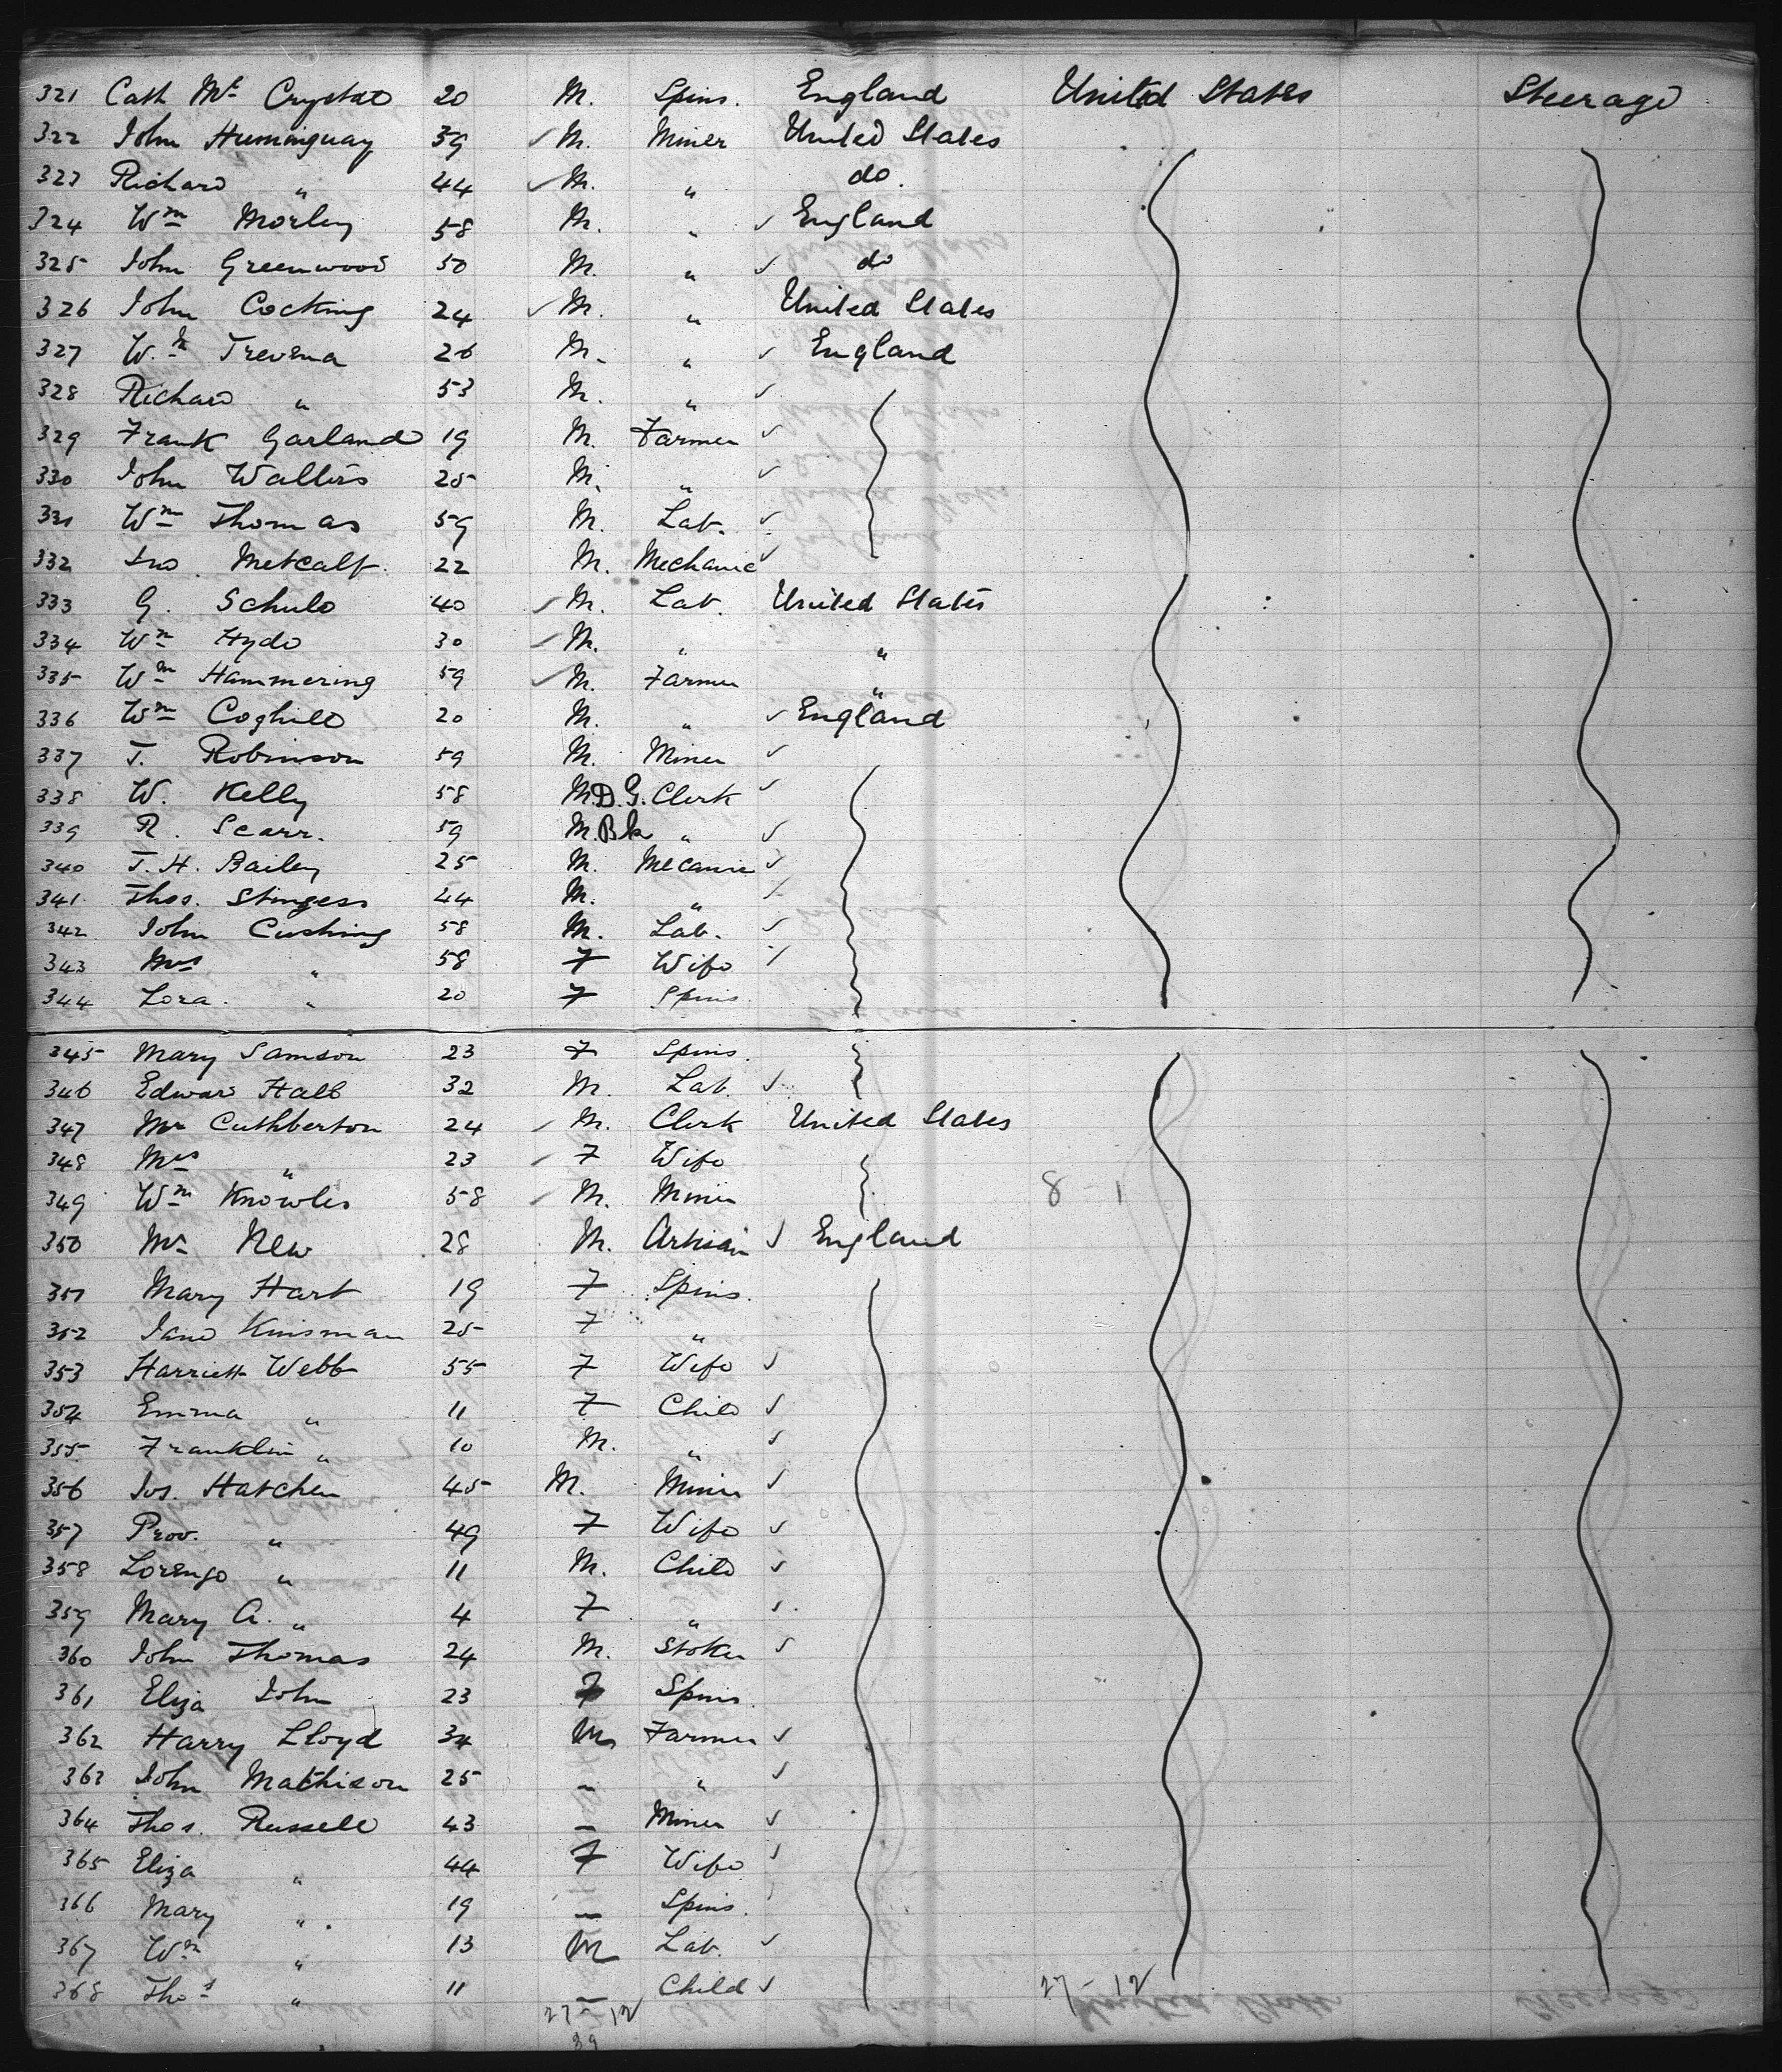 321 Cath Mc Crystal 20 M. Spins. England United States Steerage
322 John Huminguay 39 ✓ M. Miner United States
323 Richard " 44 ✓ M. " do.
324 Wm Morley 58 M. " ✓ England
325 John Greenwood 50 M. " ✓ do
326 John Cocking 24 ✓ M. " United States
327 Wm Trevena 26 M. " ✓ England
328 Richard " 53 M. " ✓
329 Frank Garland 19 M. Farmer ✓
330 John Walters 25 M. " ✓
331 Wm Thomas 59 M. Lab. ✓
332 Jno. Metcalf. 22 M. Mechanic ✓
333 G. Schulo 40 ✓ M. Lab. United States
334 Wm Hyde 30 ✓ M. " "
335 Wm Hammering 59 ✓ M. Farmer "
336 Wm Coghill 20 M. " ✓ England
337 T. Robinson 59 M. Miner ✓
338 W. Kelly 58 M.D.G. Clerk ✓
339 R. Scarr. 59 M. Bk " ✓
340 T. H. Bailey 25 M. Mecanic ✓
341 Thos. Stingess 44 M. " ✓
342 John Cushing 58 M. Lab. ✓
343 Mrs " 58 F Wife ✓
344 Lora. " 20 F Spins
345 Mary Samson 23 F Spins.
346 Edward Hall 32 M. Lab ✓
347 Mr Cuthberton 24 ✓ M. Clerk United States
348 Mrs " 23 ✓ F Wife
349 Wm Knowles 58 ✓ M. Miner 8 - 1
350 Mr New 28 M. Artisain ✓ England
351 Mary Hart 19 F Spins.
352 Jane Kinsman 25 F "
353 Harriett Webb 55 F Wife ✓
354 Emma " 11 F Child ✓
355 Franklin " 10 M. " ✓
356 Jos. Hatchen 45 M. Miner ✓
357 Prov. " 49 F Wife ✓
358 Lorengo " 11 M. Child ✓
359 Mary A. " 4 F " ✓
360 John Thomas 24 M. Stoker ✓
361 Eliza John 23 F Spins
362 Harry Lloyd 34 M Farmer ✓
363 John Mathison 25 - " ✓
364 Thos. Russell 43 - Miner ✓
365 Eliza " 44 F Wife ✓
366 Mary " 19 - Spins.
367 Wm " 13 M Lab. ✓
368 Thos " 11 - Child ✓ 27 - 12
27 - 12
39